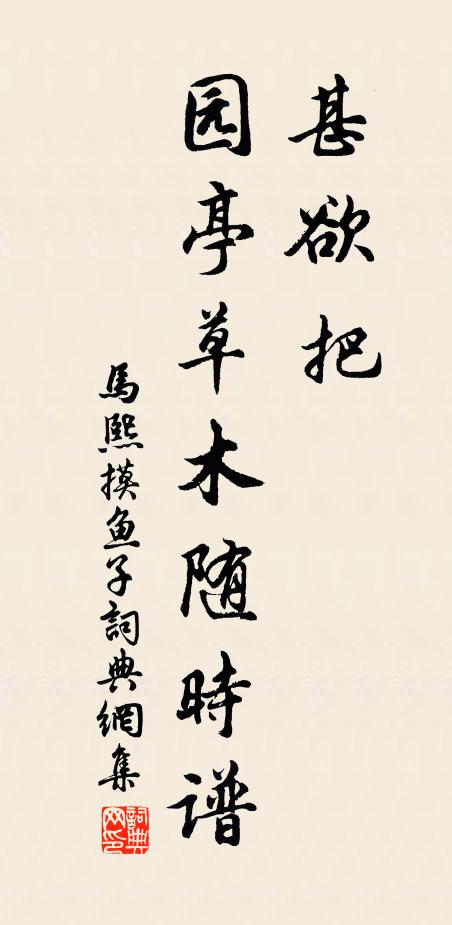 甚欲把
园亭草木随時谱
馬熙摸鱼子詞典網集
詞典
网印